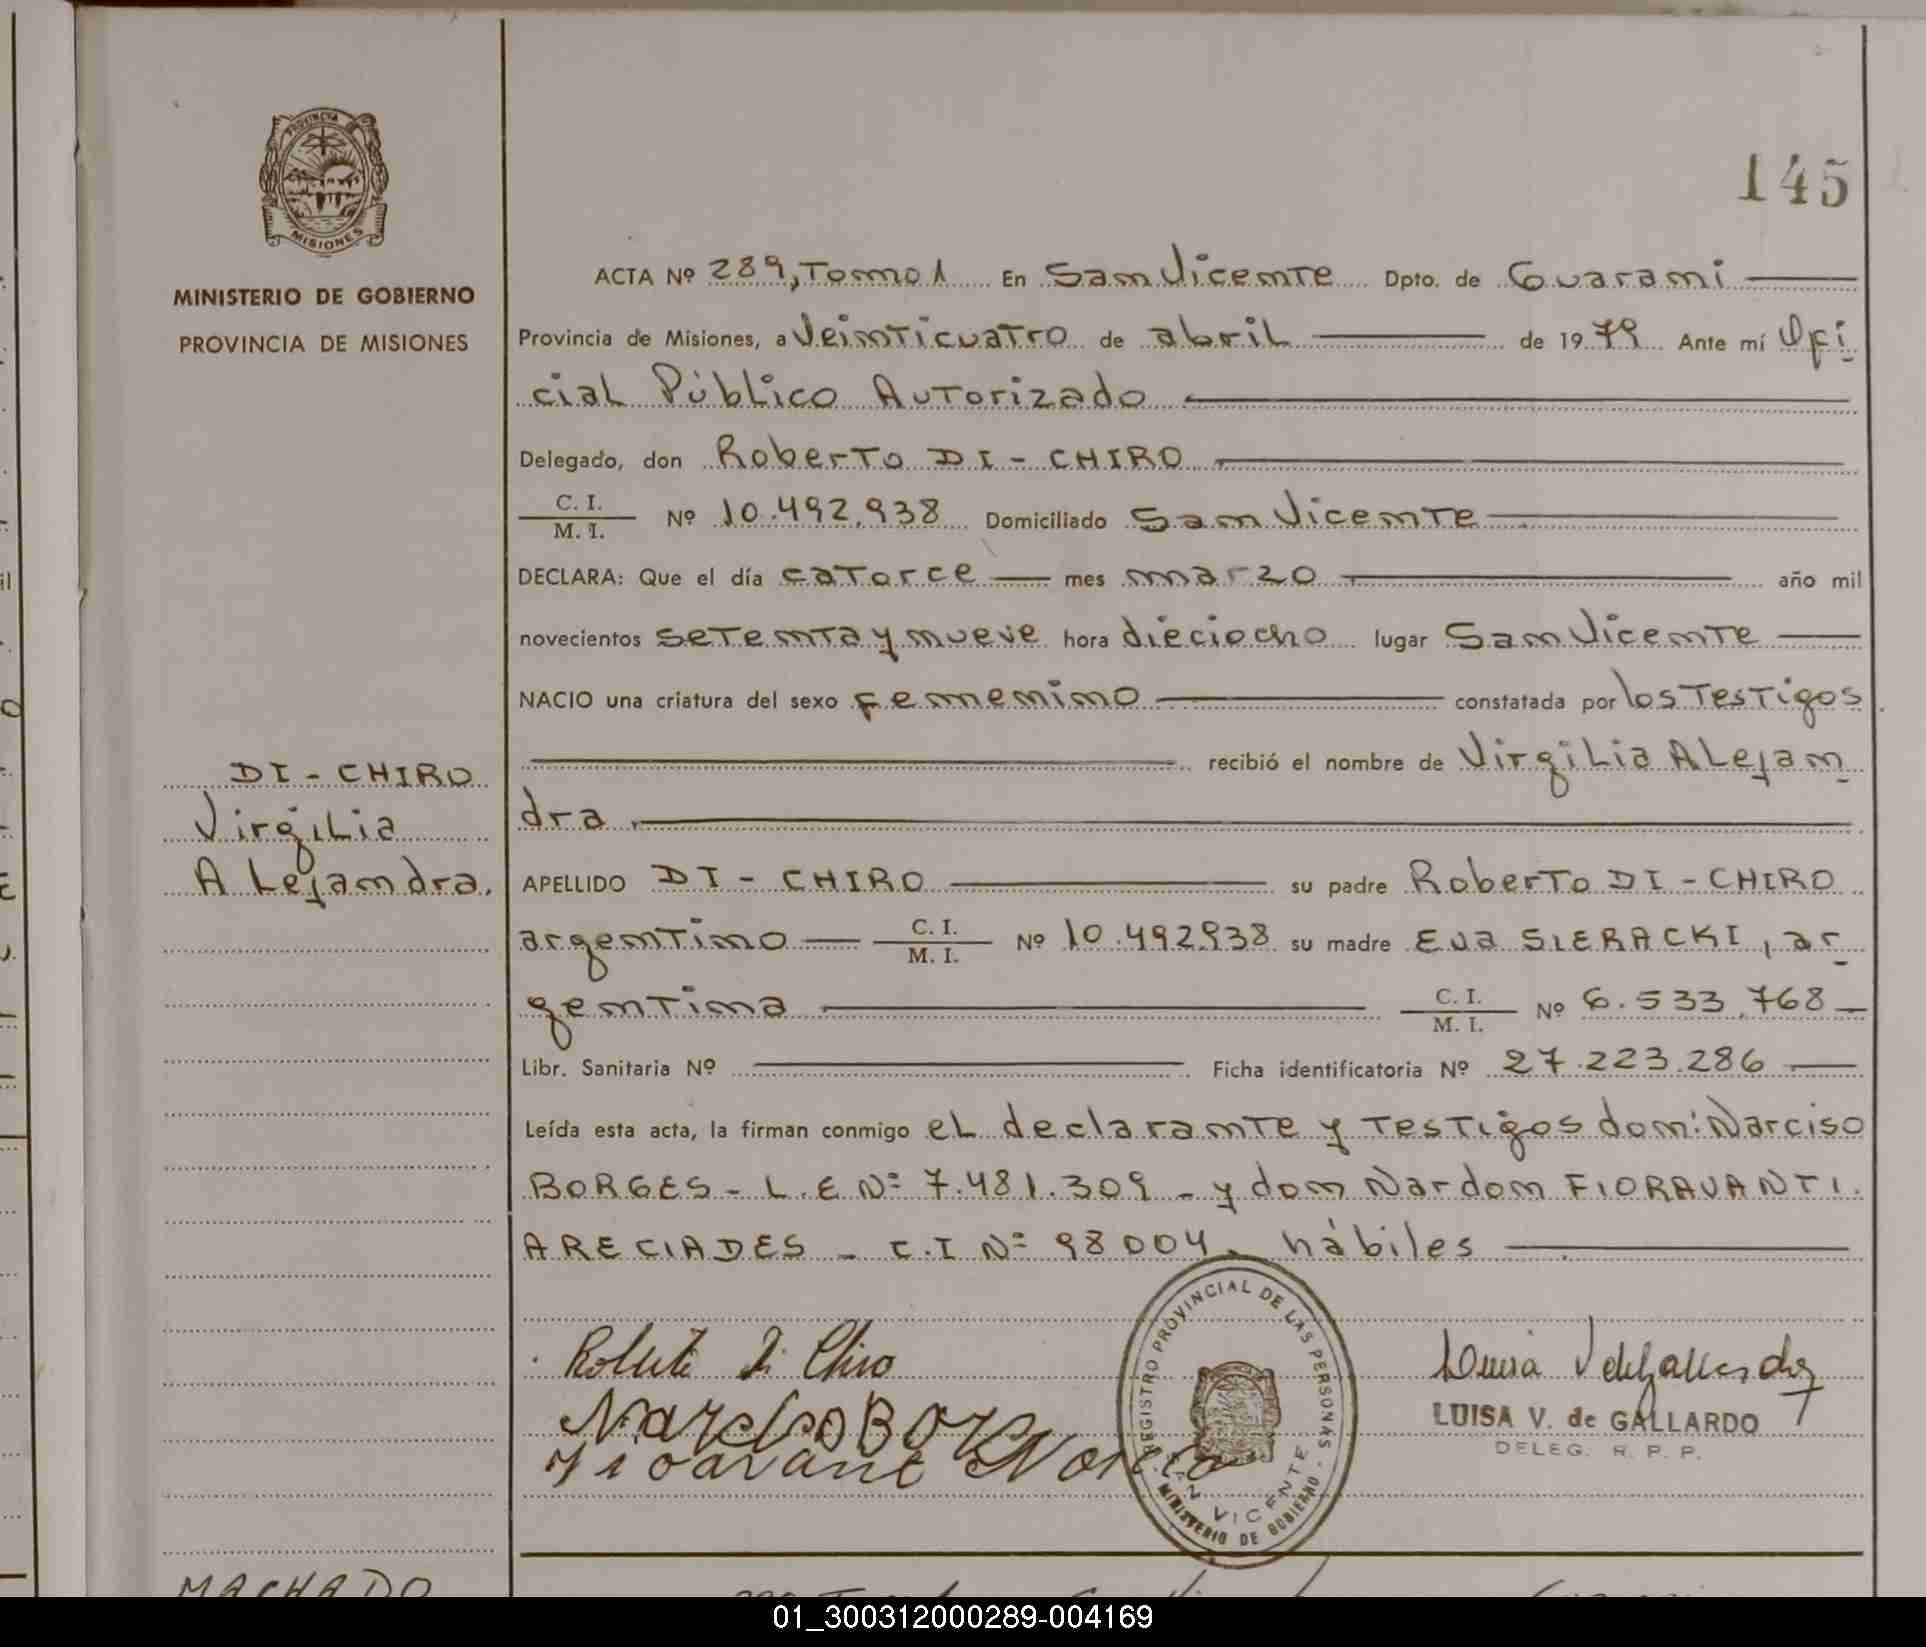 PROVINCIA DE
MISIONES
MINISTERIO DE GOBIERNO
PROVINCIA DE MISIONES
DI - CHIRO
Virgilia
Alejandra.
145
ACTA Nº 289, Tomo 1 En San Vicente Dpto. de Guarani
Provincia de Misiones, a Veinticuatro de abril de 1979 Ante mí Ofi
cial Público Autorizado
Delegado, don Roberto DI - CHIRO
C. I.
M. I. Nº 10.492.938 Domiciliado San Vicente
DECLARA: Que el día catorce mes marzo año mil
novecientos setenta y nueve hora dieciocho lugar San Vicente
NACIO una criatura del sexo femenino constatada por los Testigos
recibió el nombre de Virgilia Alejan
dra
APELLIDO DI - CHIRO su padre Roberto DI - CHIRO
argentino C. I.
M. I. Nº 10.492938 su madre Eva SIERACKI, ar
gentina C. I.
M. I. Nº 6.533.768
Libr. Sanitaria Nº Ficha identificatoria Nº 27.223.286
Leída esta acta, la firman conmigo el declarante y Testigos don: Narciso
BORGES - L.E Nº 7.481.309 - y don Nardon FIORAVANTI.
ARECIADES - C.I Nº 98004 - hábiles
Roberto Di Chiro
Narciso Borge
REGISTRO PROVINCIAL DE LAS PERSONAS
SAN VICENTE
MINISTERIO DE GOBIERNO
LUISA V. de GALLARDO
DELEG. R. P. P.
MACHADO
01_300312000289-004169